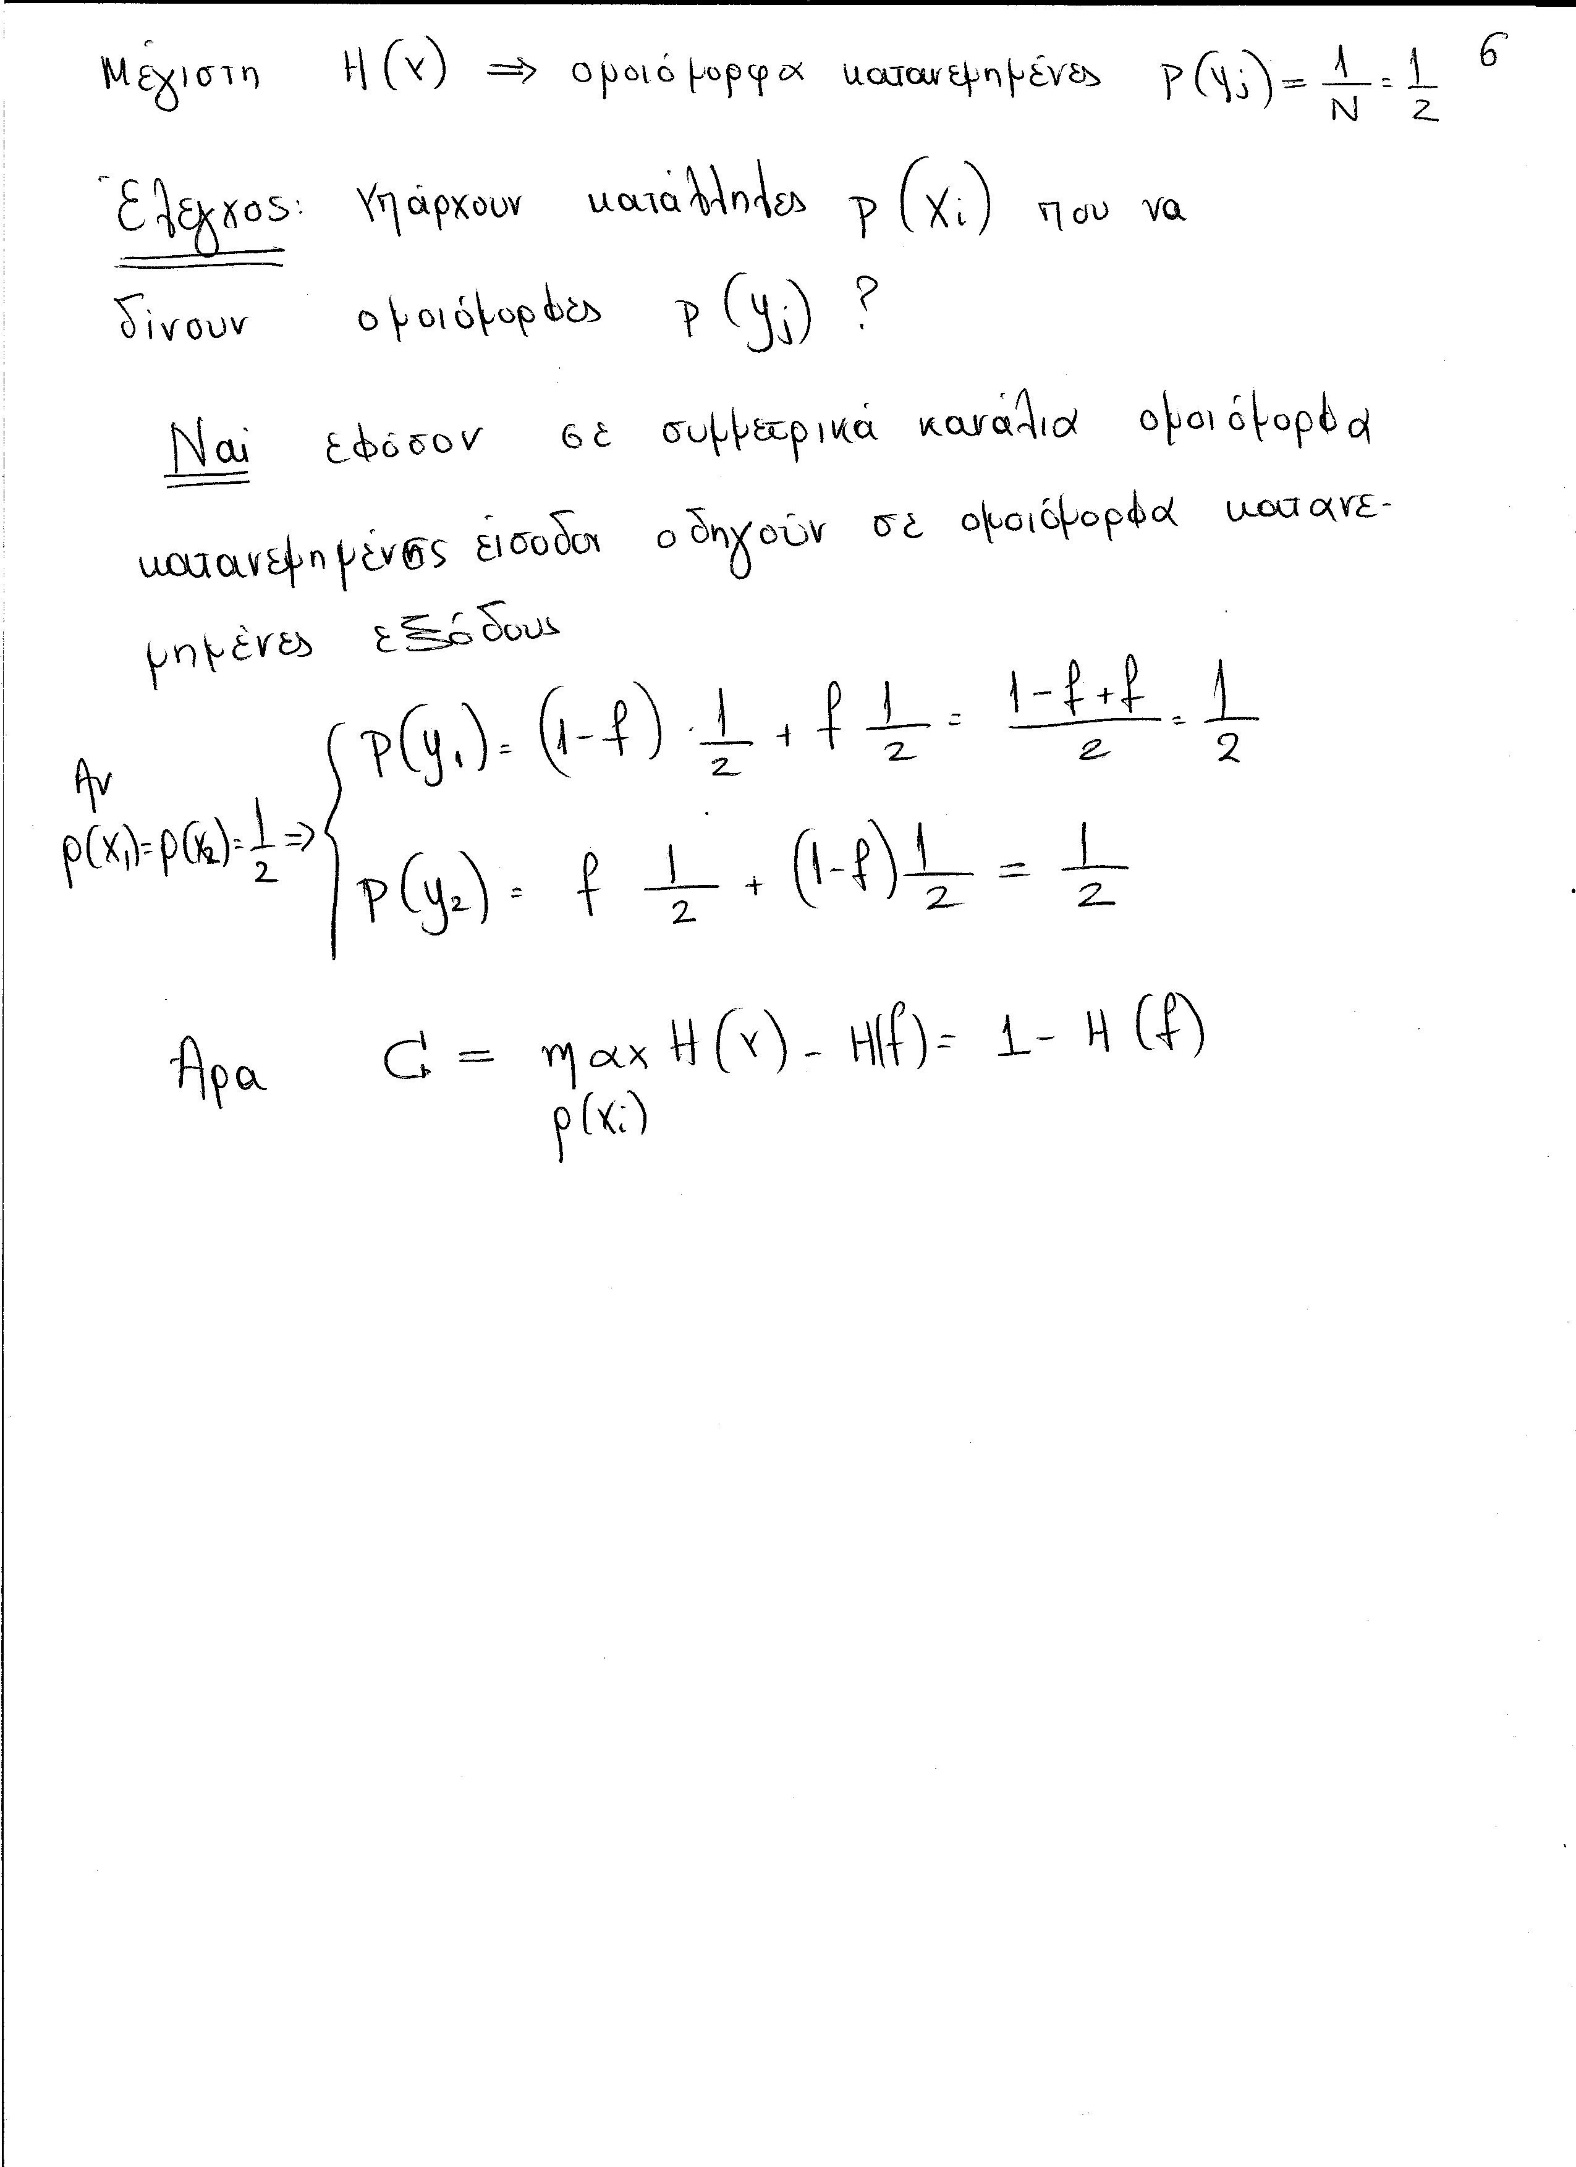 Μέγιστη H(Y) ⇒ ομοιόμορφα κατανεμημένες P(yj) = 1/N = 1/2 6
Έλεγχος: Υπάρχουν κατάλληλες p(xi) που να
δίνουν ομοιόμορφες p(yj) ?
Ναι εφόσον σε συμμετρικά κανάλια ομοιόμορφα
κατανεμημένες είσοδοι οδηγούν σε ομοιόμορφα κατανε-
μημένες εξόδους
Αν
p(x1)=p(x2)=1/2 ⇒
P(y1) = (1-f) · 1/2 + f 1/2 = (1-f+f)/2 = 1/2
P(y2) = f 1/2 + (1-f) 1/2 = 1/2
Άρα C = max H(Y) - H(f) = 1 - H(f)
p(xi)